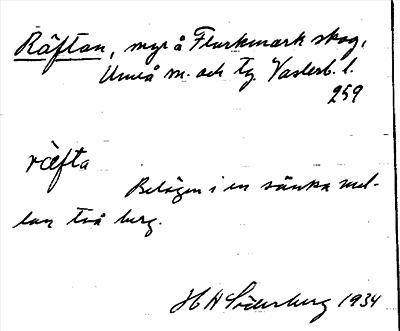 Räftan, myr å Flurkmark skog,
Umeå sn. och tg. Västerb. l.
259
ræfta
Belägen i en sänka mel-
lan två berg.
H Söderberg 1934